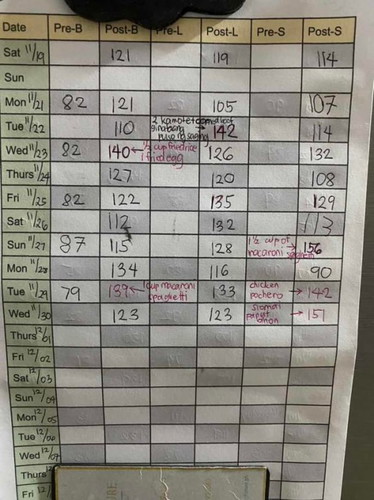 Date Pre-B Post-B Pre-L Post-L Pre-S Post-S
Sat 11/19 121 119 114
Sun
Mon 11/21 82 121 105 107
Tue 11/22 110 2 kamote 142 114
Wed 11/23 82 140 ← 1/2 cup friedrice 1 fried egg 126 132
Thurs 11/24 127 120 108
Fri 11/25 82 122 135 129
Sat 11/26 112 132 113
Sun 11/27 87 115 128 1 1/2 cup of macaroni → 156
Mon 11/28 134 116 90
Tue 11/29 79 139 ← 1 cup macaroni spaghetti 133 chicken pochero → 142
Wed 11/30 123 123 siomai → 151
Thurs 12/01
Fri 12/02
Sat 12/03
Sun 12/04
Mon 12/05
Tue 12/06
Wed 12/07
Thurs 12/
Fri 12/